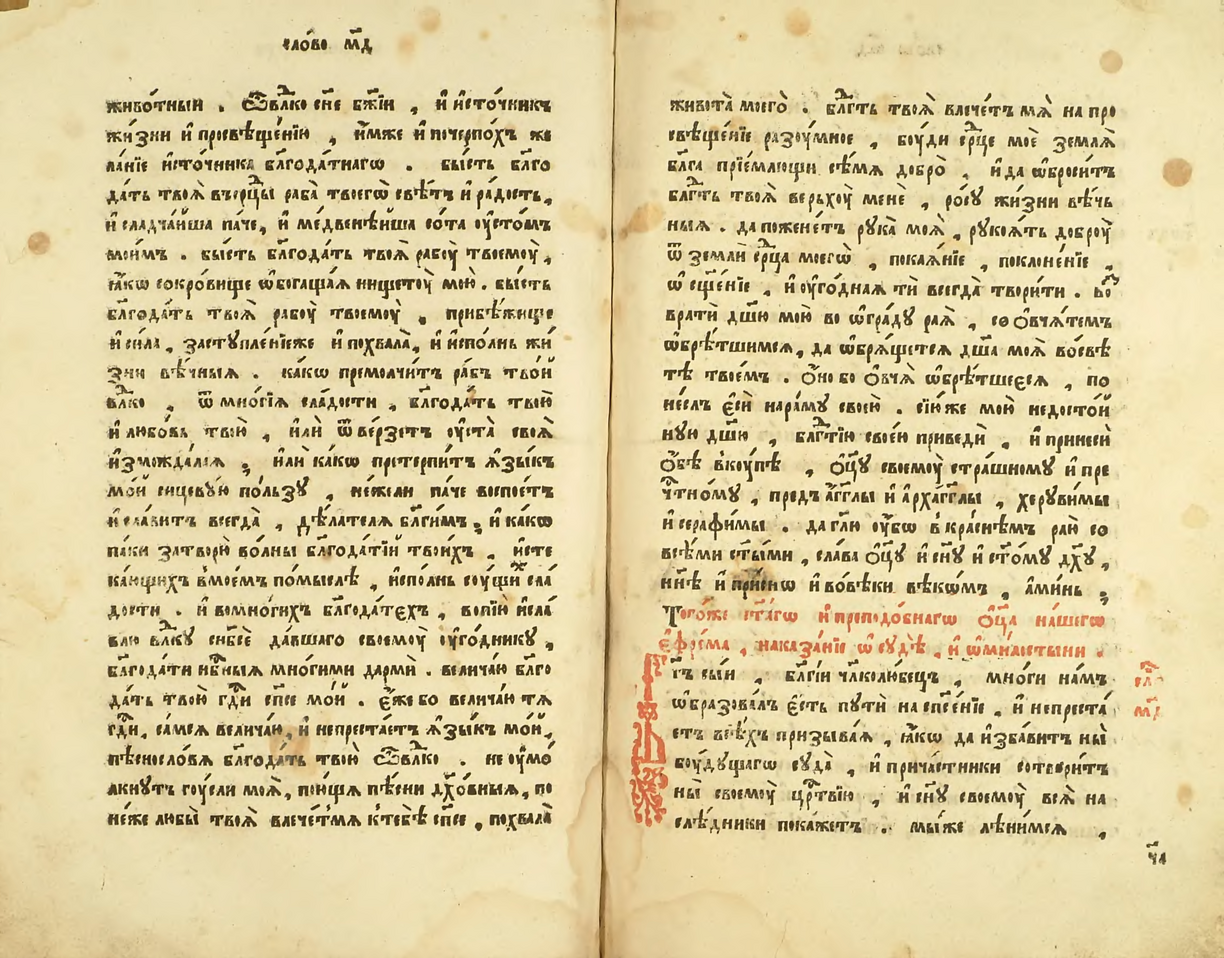 сло́во м҃д
живо́тныи . Ѽ влⷣко сн҃е бж҃їи , и҆ и҆сто́чникъ
жи́зни и҆ просвѣще́нїю , и҆́мже и҆ почерпо́хъ же
ла́нїе и҆сто́чника бл҃года́тнагѡ . бы́сть бл҃го
да́ть твоѧ̀ въ срⷣцы раба̀ твоегѡ̀ свѣ́тъ и҆ ра́дость,
и҆ сладча́йша па́че, и҆ ме́двенѣйша со́та оу҆сто́мъ
мои́мъ . бы́сть бл҃года́ть твоѧ̀ рабоу̀ твоемоу̀ ,
ꙗ҆́кѡ сокро́вище ѡ҆богаща́ѧ нищетоу̀ мою̀ . бы́сть
бл҃года́ть твоѧ̀ рабоу̀ твоемоу̀ , прибѣ́жище
и҆ си́ла , застꙋпле́нїеже и҆ похвала̀, и҆ и҆спо́лнь жи́
зни вѣ́чныѧ . ка́кѡ премолчи́тъ ра́бъ тво́й
влⷣко , ѿ мно́гїѧ сла́дости , бл҃года́ть твою̀
и҆ любо́вь твою̀ , и҆лѝ ѿве́рзетъ оу҆ста̀ своѧ̀
и҆зможда́лаѧ ; и҆лѝ ка́кѡ претерпи́тъ ѧ҆зы́къ
мо́й сицевꙋ́ю по́льзꙋ , не́жели па́че воспое́тъ
и҆ сла́витъ всегда̀ , дѣ́лателѧ бл҃ги́мъ ; и҆ ка́кѡ
па́ки затворю̀ во́лны бл҃года́тїй твои́хъ , и҆сте
ка́ющихъ в̾мое́мъ по́мыслѣ , и҆спо́лнь соу́щихъ сла́
дости . и҆ вомно́гихъ бл҃года́тєхъ , вопїю̀ и҆сла́
влю влⷣкꙋ сн҃бсѐ да́вшаго своемоу̀ оу҆го́дникꙋ ,
бл҃года́ти нбⷭ҇ныѧ мно́гими дармѝ . велича́ю бл҃го
да́ть твою̀ гдⷭ҇и сп҃се мо́й . є҆́же бо велича́ю тѧ
гдⷭ҇и, самсѧ велича́ю, и҆ непреста́етъ ѧ҆зы́къ мо́й,
пѣсносло́вѧ бл҃года́ть твою̀ Ѽ влⷣко . не оу҆мо́
лкнꙋтъ гоу́сли моѧ̀, пою́щѧ пѣ́сни дх҃о́вныѧ, по
не́же любы̀ твоѧ̀ влече́тмѧ к̾тебѣ̀ сп҃се , похвала̀
живота̀ моего̀ . бл҃гⷣть твоѧ̀ влече́тъ мѧ̀ на про
свѣще́нїе разоу́мное , боу́ди срⷣце моѐ землѧ̀
бл҃га прїе́млющи сѣ́мѧ добро̀ , и҆ да ѡ҆броси́тъ
бл҃гⷣть твоѧ̀ верьхоу̀ менѐ , ро́сꙋ жи́зни вѣ́чь
ныѧ . да поже́нетъ рꙋка̀ моѧ̀ , рꙋкоѧ́ть доброу̀
ѿ землѝ срⷣца моегѡ̀ , покаѧ́нїе , поклоне́нїе ,
ѡ҆сщ҃е́нїе , и҆ оу҆го́днаѧ тѝ всегда̀ твори́ти . воз
вратѝ дш҃ю мою̀ во ѡ҆гра́дꙋ раѧ̀ , со ѻ҆вчѧ́темъ
ѡ҆брѣ́тшимсѧ, да ѡ҆брѧ́щетсѧ дш҃а моѧ̀ во́свѣ
тѣ твое́мъ . ѻ҆́но бо ѻ҆вчѧ̀ ѡ҆брѣ́тшеєсѧ , по
не́слъ є҆сѝ нара́мꙋ свое́ю . сїю́же мою̀ недосто́й
нꙋю дш҃ю , бл҃гⷣтїю свое́ю приведѝ , и҆ принесѝ
ѻ҆́бѣ вкоу́пѣ , ѻ҆ц҃ꙋ своемоу̀ стра́шномꙋ и҆ пре
чⷭ҇тномꙋ , предъ а҆́гг҃лы и҆ а҆рха́гг҃лы , херꙋви́мы
и҆ серафи́мы . да гл҃ю оу҆́бѡ в̾кра́снѣмъ раѝ со
всѣ́ми ст҃ы́ми , сла́ва ѻ҆ц҃ꙋ и҆ сн҃ꙋ и҆ ст҃о́мꙋ дх҃ꙋ ,
ны́нѣ и҆ при́снѡ и҆ во́вѣки вѣкѡ́мъ , а҆ми́нь ;
Того́же ст҃а́гѡ и҆ преподо́бнагѡ ѻ҆ц҃а̀ на́шегѡ
є҆фре́ма , наказа́нїе ѡ҆ сꙋдѣ̀ , и҆ ѡ҆ми́лостыни .
гⷭ҇ь сы́и , бл҃гі́и чл҃колю́бецъ , мно́ги на́мъ
ѡ҆бразова́лъ є҆́сть пꙋтѝ на сп҃се́нїе , и҆ непреста
етъ всѣ́хъ призыва́ѧ , ꙗ҆́кѡ да и҆зба́витъ ны̀
боу́дꙋщагѡ сꙋда̀ , и҆ прича́стники сотвори́тъ
ны̀ своемоу̀ црⷭ҇твїю , и҆ сн҃ꙋ своемоу̀ всѧ̀ на
слѣ́дники пока́жетъ . мы́же лѣни́мсѧ ,
сло
м҃д
ч҃а